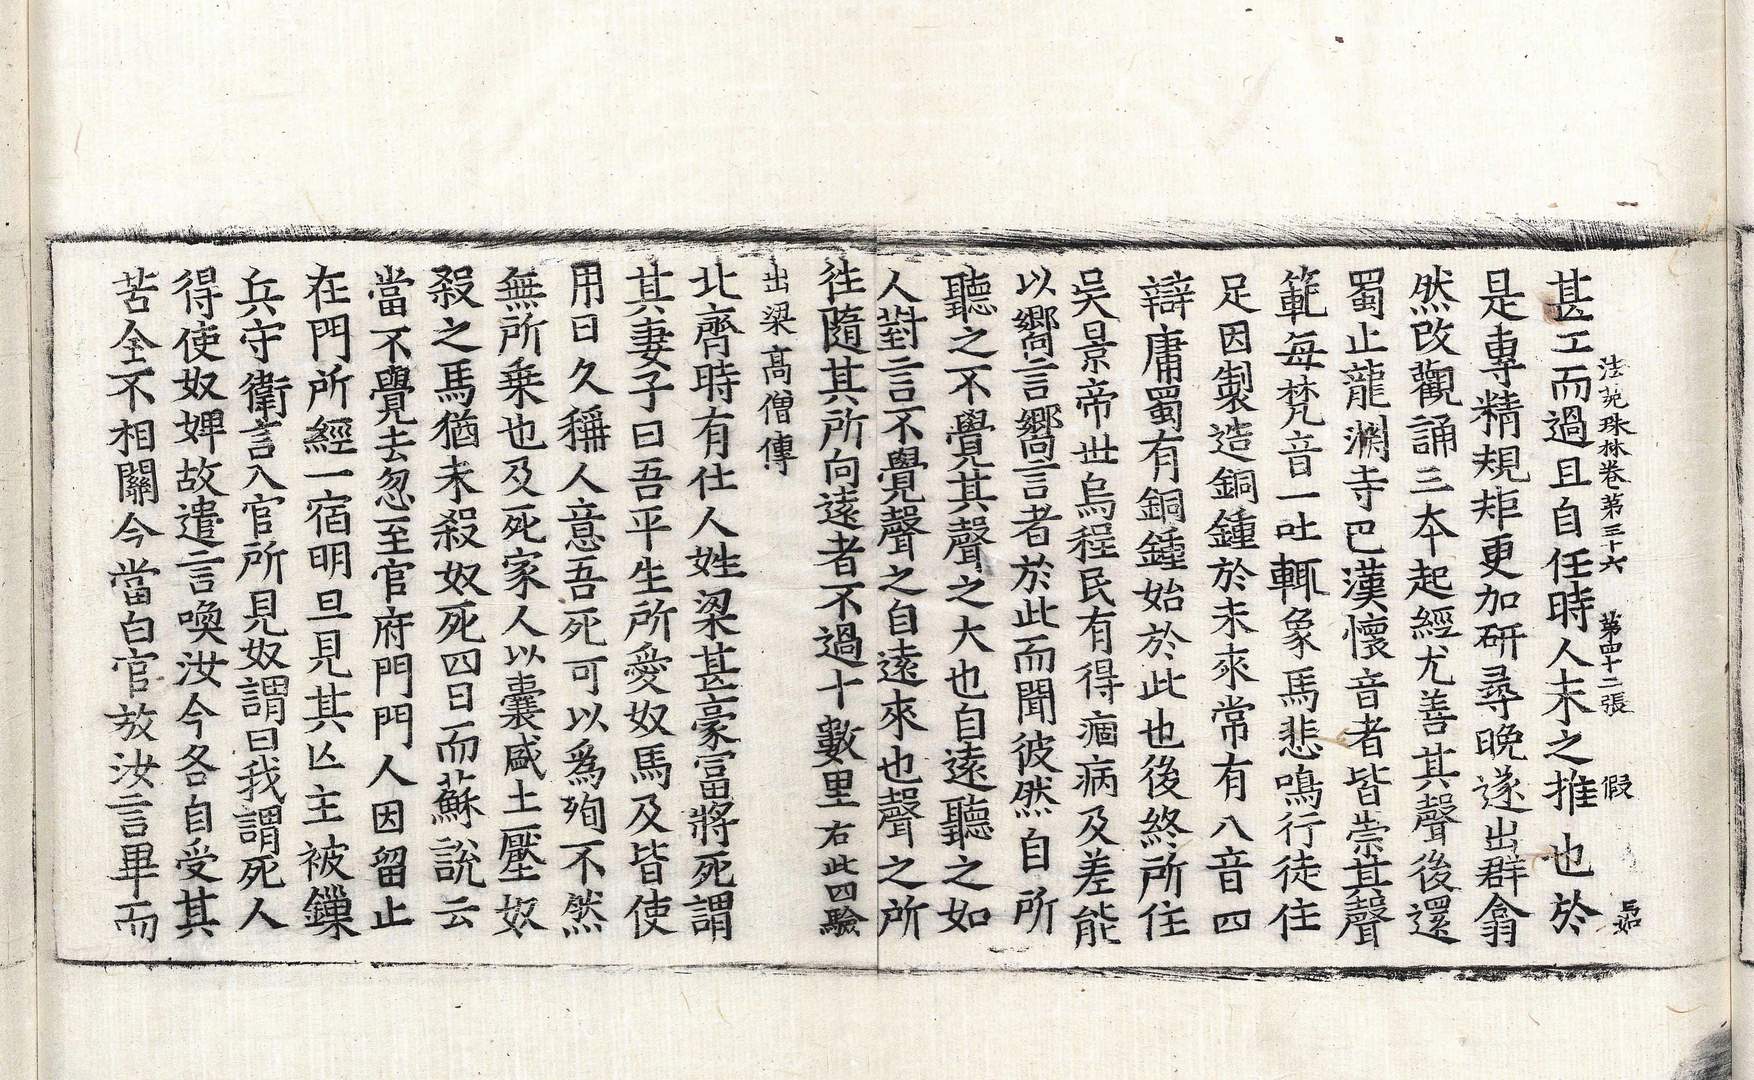 法苑珠林卷第三十六 第四十二張 假
甚工而過且自任時人未之推也於
是專精規矩更加研尋晚遂出群翕
然改觀誦三本起經尤善其聲後還
蜀止龍淵寺巴漢懷音者皆崇其聲
範每梵音一吐輒象馬悲鳴行徒住
足因製造銅鍾於未來常有八音四
辯庸蜀有銅鍾始於此也後終所住
吳景帝世烏程民有得痼病及差能
以嚮言嚮言者於此而聞彼然自所
聽之不覺其聲之大也自遠聽之如
人對言不覺聲之自遠來也聲之所
往隨其所向遠者不過十數里右此四驗
出梁高僧傳
北齊時有仕人姓梁甚豪富將死謂
其妻子曰吾平生所愛奴馬及皆使
用日久稱人意吾死可以為殉不然
無所乘也及死家人以囊盛土壓奴
殺之馬猶未殺奴死四日而蘇說云
當不覺去忽至官府門門人因留止
在門所經一宿明旦見其亾主被鏁
兵守衛言入官所見奴謂曰我謂死人
得使奴婢故遣言喚汝今各自受其
苦全不相關今當白官放汝言畢而